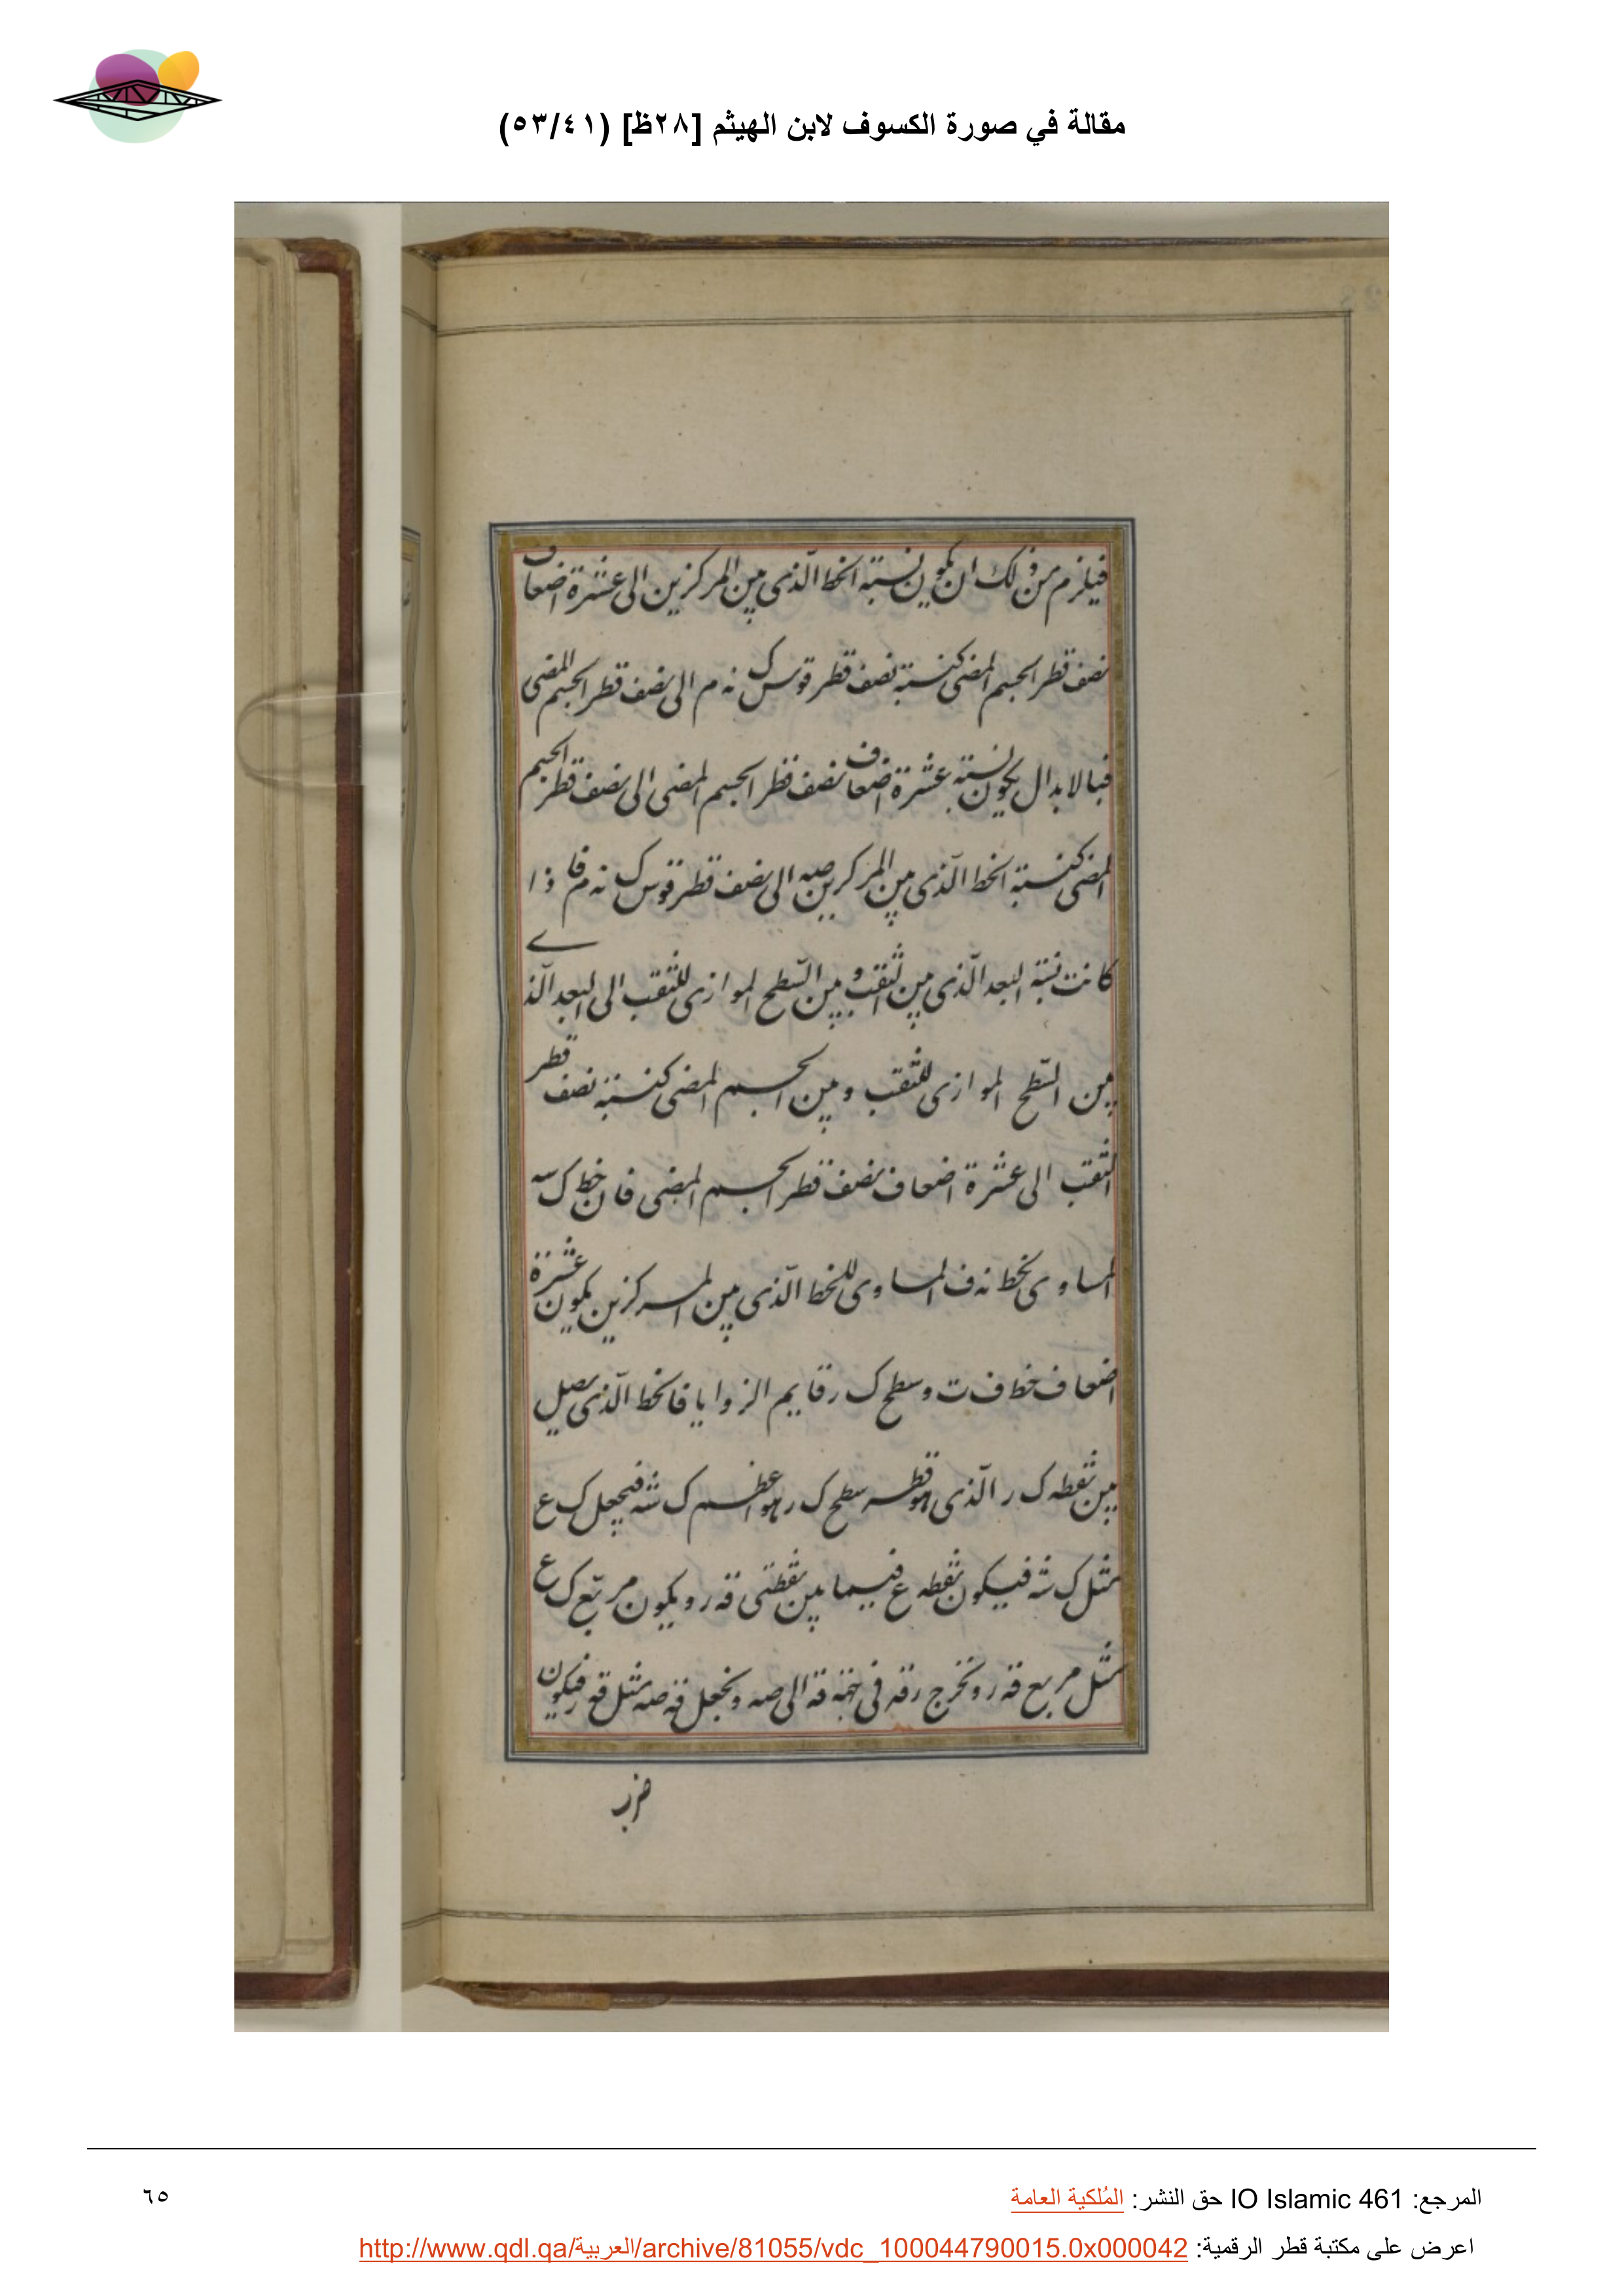 مقالة في صورة الكسوف لابن الهيثم [٢٨ظ] (٥٣/٤١)
فيلزم من ذلك ان يكون نسبة الخط الّذى بين المركزين الى عشرة اضعاف
نصف قطر الجسم المضى كنسبة نصف قطر قوس ك نه م الى نصف قطر الجسم المضى
فبالابدال يكون نسبة عشرة اضعاف نصف قطر الجسم المضى الى نصف قطر الجسم
المضى كنسبة الخط الّذى بين المركزين صه الى نصف قطر قوس ك نه م فاذا
كانت نسبة البعد الّذى بين الثقب و بين السّطح الموازى للثقب الى البعد الّذى
بين السّطح الموازى للثقب و بين الجسم المضى كنسبة نصف قطر
الثقب الى عشرة اضعاف نصف قطر الجسم المضى فان خط ك سه
المساوى لخط نه ف المساوى للخط الّذى بين المركزين يكون عشرة
اضعاف خط ف ت وسطح ك ر قايم الزوايا فالخط الّذى يصل
بين نقطه ك ر الّذى هو قطر سطح ك ر هو اعظم ك شه فيجعل ك ع
مثل ك شه فيكون نقطه ع فيما بين نقطتى قه ر ويكون مربّع ك ع
مثل مربع قه ر و نخرج رقه فى جهة قه الى صه و نجعل قه صه مثل قه ر فيكون
ضرب
المرجع: IO Islamic 461 حق النشر: المُلكية العامة
٦٥
اعرض على مكتبة قطر الرقمية: http://www.qdl.qa/العربية/archive/81055/vdc_100044790015.0x000042